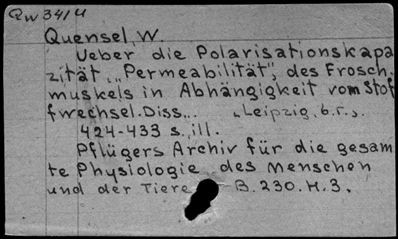 Qw 341u
Quensel, W.
Ueber die Polarisationskapa
zität, "Permeabilität", des Frosch.
muskels in Abhängigkeit vom Stof
fwechsel. Diss... „Leipzig, b.r.,.
424-433 s. ill.
Pflügers Archiv für die gesam
te Physiologie des Menschen
und der Tiere B. 230. H. 3.